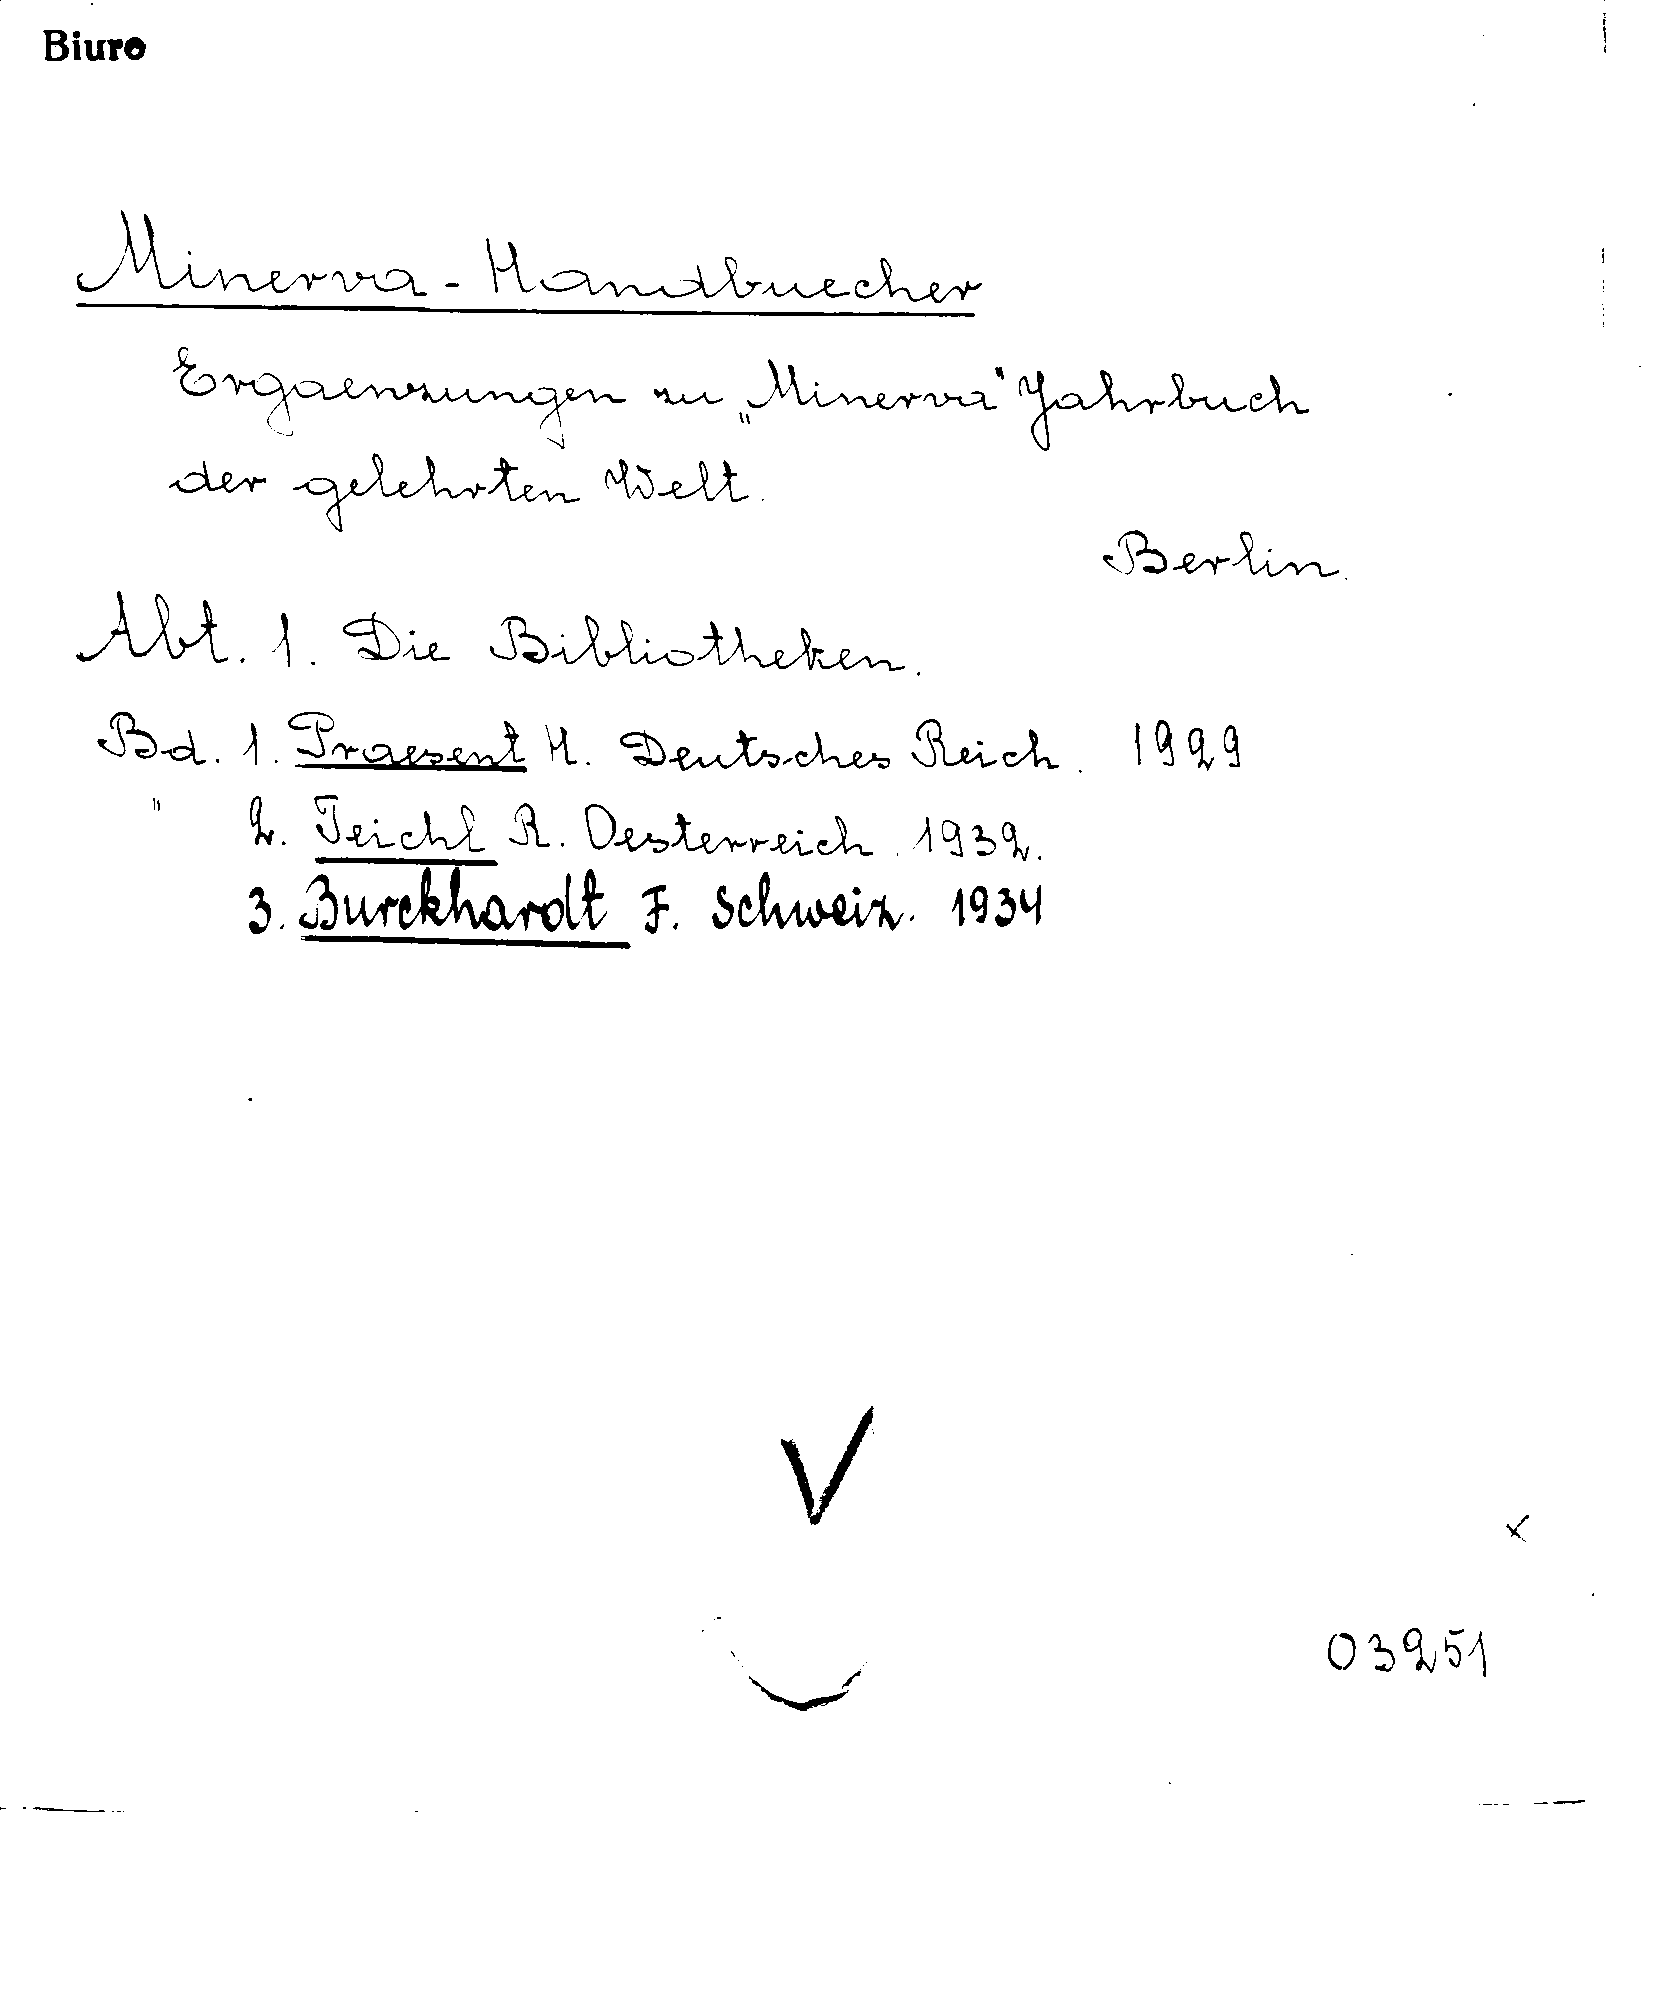 Biuro
Minerva - Handbuecher
Ergaenzungen zu „Minerva" Jahrbuch
der gelehrten Welt.
Berlin.
Abt. 1. Die Bibliotheken.
Bd. 1. Praesent H. Deutsches Reich. 1929
" 2. Teichl R. Oesterreich. 1932.
3. Burckhardt F. Schweiz. 1934
V
x
03251